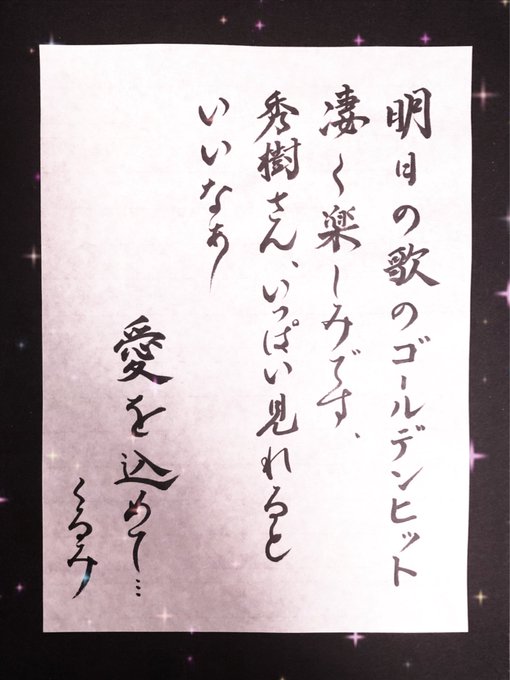 明日の歌のゴールデンヒット
凄く楽しみです、
秀樹さん、いっぱい見れると
いいなぁー
愛を込めて…
くるみ